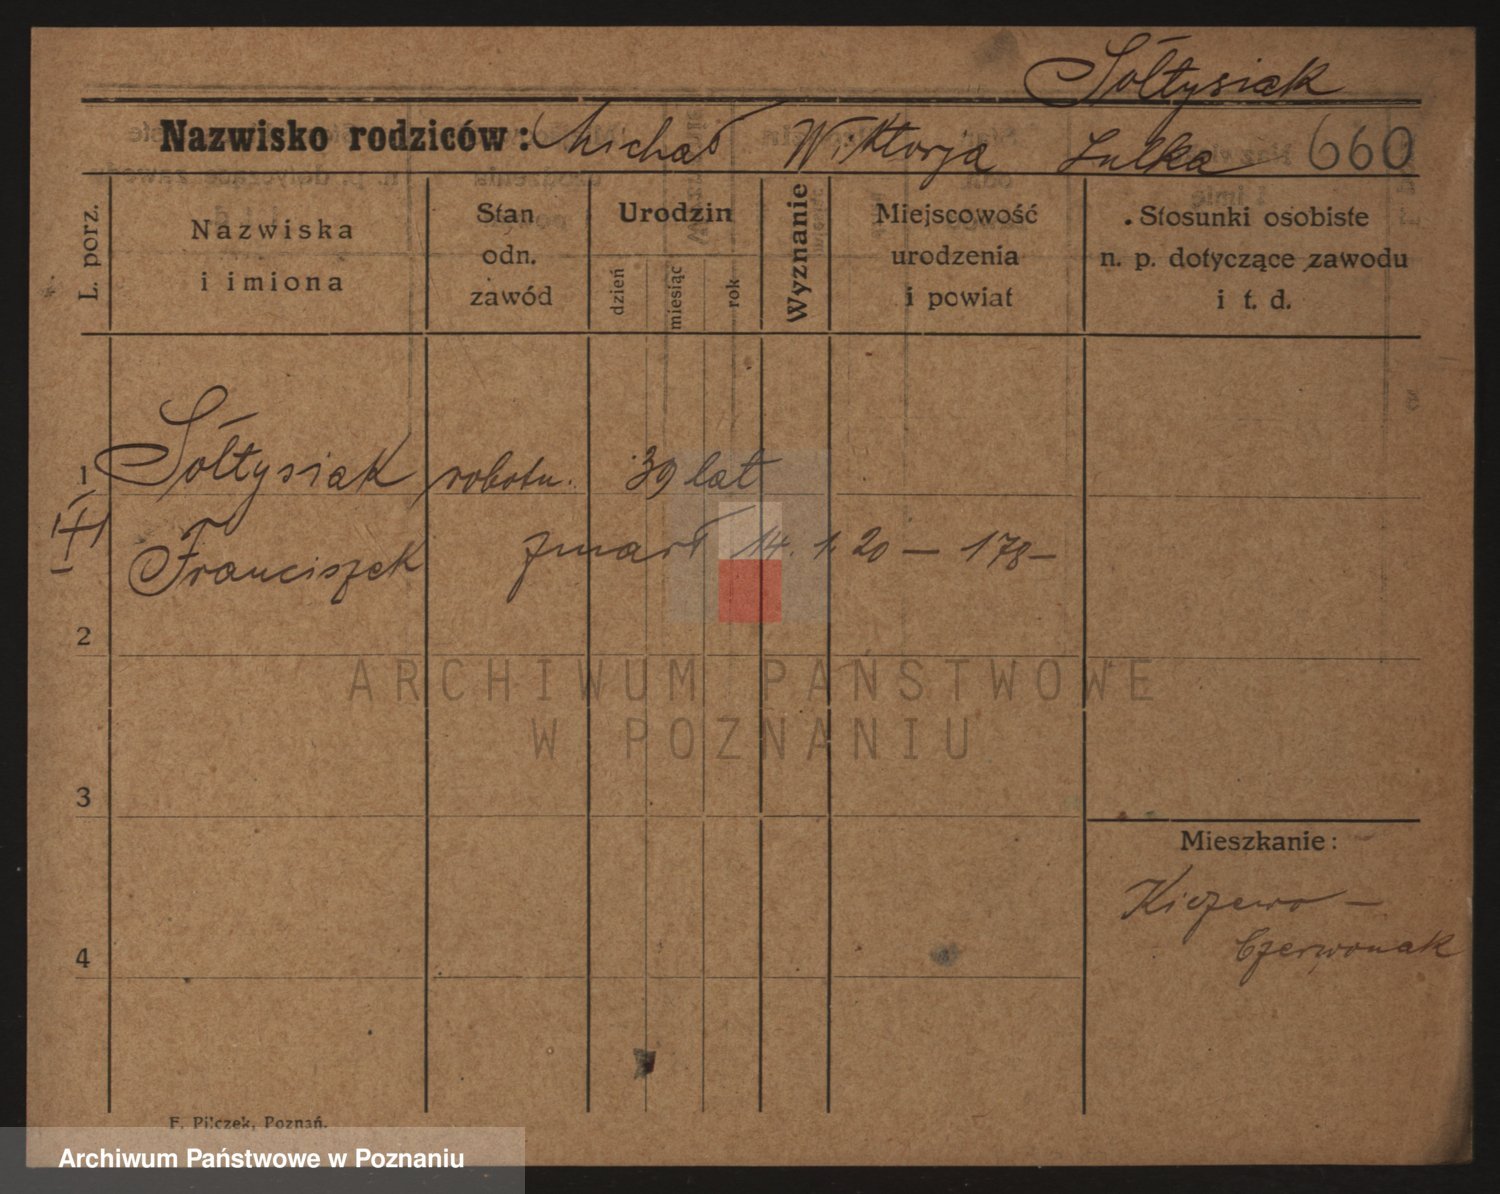 Sołtysiak
Nazwisko rodziców: Michał Wiktorja Lulka 660
L. porz.
Nazwiska
i imiona
Stan
odn.
zawód
Urodzin
dzień
miesiąc
rok
Wyznanie
Miejscowość
urodzenia
i powiat
Stosunki osobiste
n. p. dotyczące zawodu
i t. d.
1 Sołtysiak robotn. 39 lat
Franciszek zmarł 14. 1. 20 — 178 —
2
ARCHIWUM PAŃSTWOWE
W POZNANIU
3
Mieszkanie:
Kiczewo —
Czerwonak
4
F. Pilczek, Poznań.
Archiwum Państwowe w Poznaniu